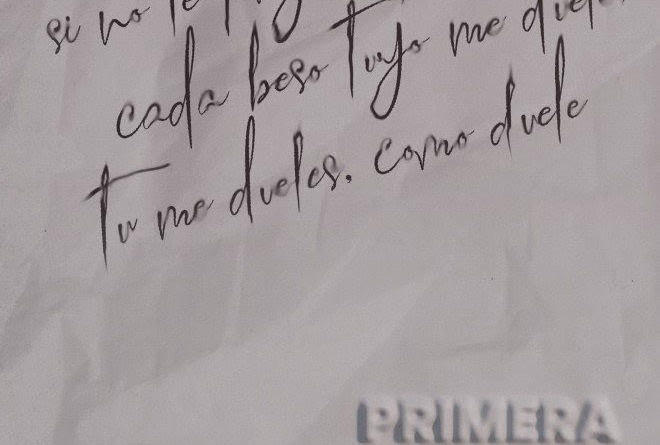 si no
cada beso tuyo me
tu me dueles. como duele
PRIMERA